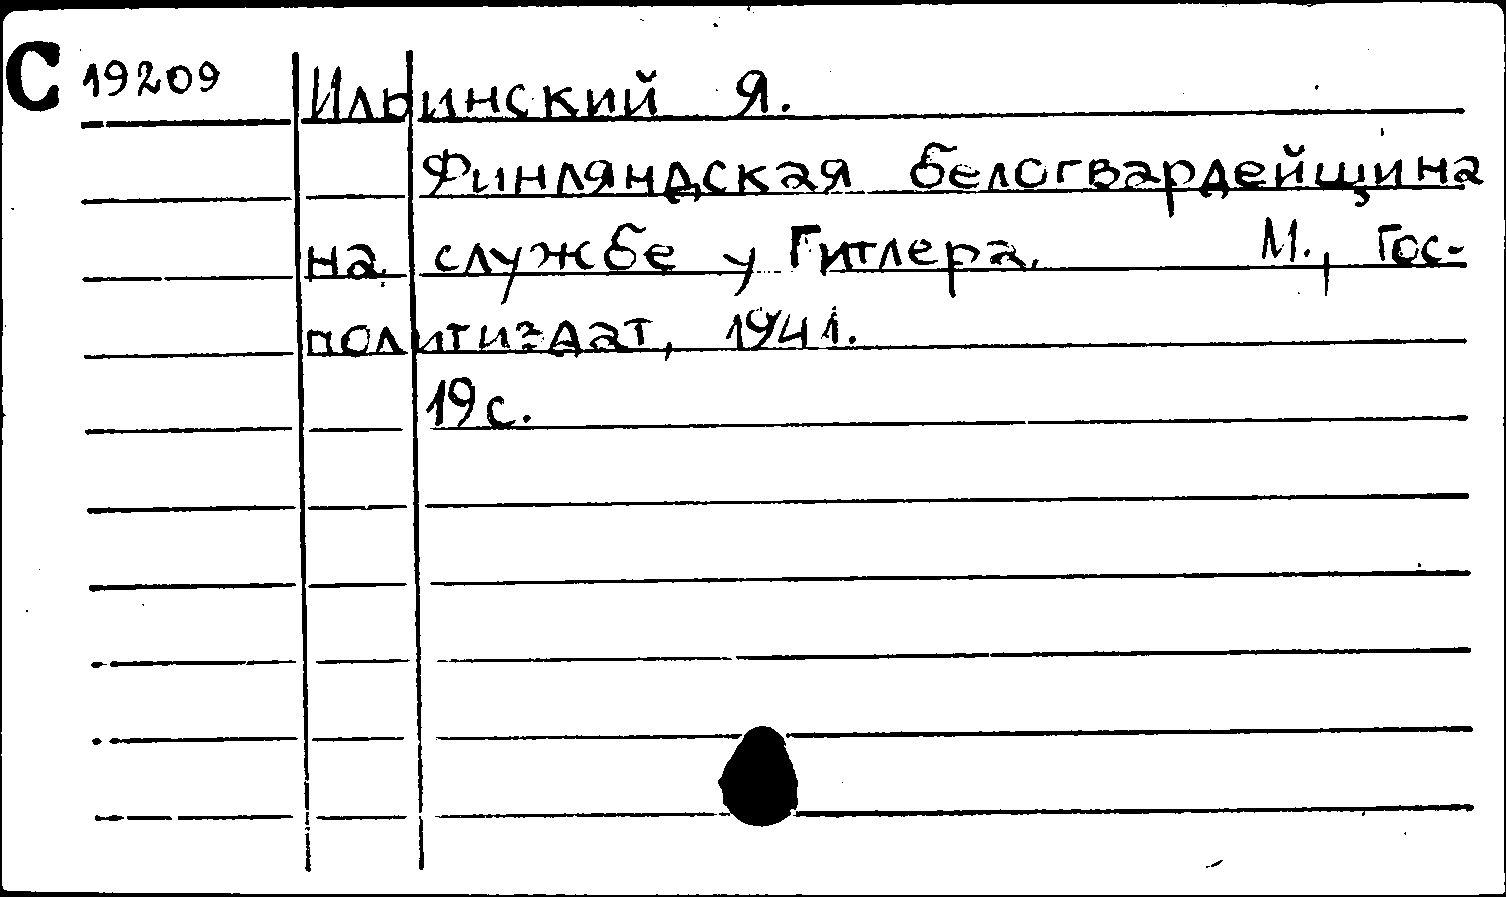 С 19209 Ильинский Я.
Финляндская белогвардейщина
на службе у Гитлера. М., Гос-
политиздат, 1941.
19 с.